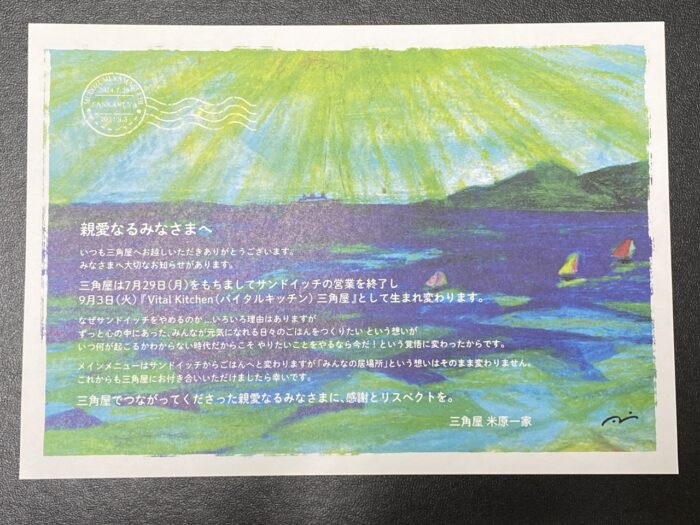 2024.7.29
SANKAKUYA
親愛なるみなさまへ
いつも三角屋へお越しいただきありがとうございます。
みなさまへ大切なお知らせがあります。
三角屋は7月29日(月)をもちましてサンドイッチの営業を終了し
9月3日(火)『Vital Kitchen(バイタルキッチン) 三角屋』として生まれ変わります。
なぜサンドイッチをやめるのか...いろいろ理由はありますが
ずっと心の中にあった、みんなが元気になれる日々のごはんをつくりたい という想いが
いつ何が起こるかわからない時代だからこそ やりたいことをやるなら今だ！という覚悟に変わったからです。
メインメニューはサンドイッチからごはんへと変わりますが「みんなの居場所」という想いはそのまま変わりません。
これからも三角屋にお付き合いいただけましたら幸いです。
三角屋でつながってくださった親愛なるみなさまに、感謝とリスペクトを。
三角屋 米原一家